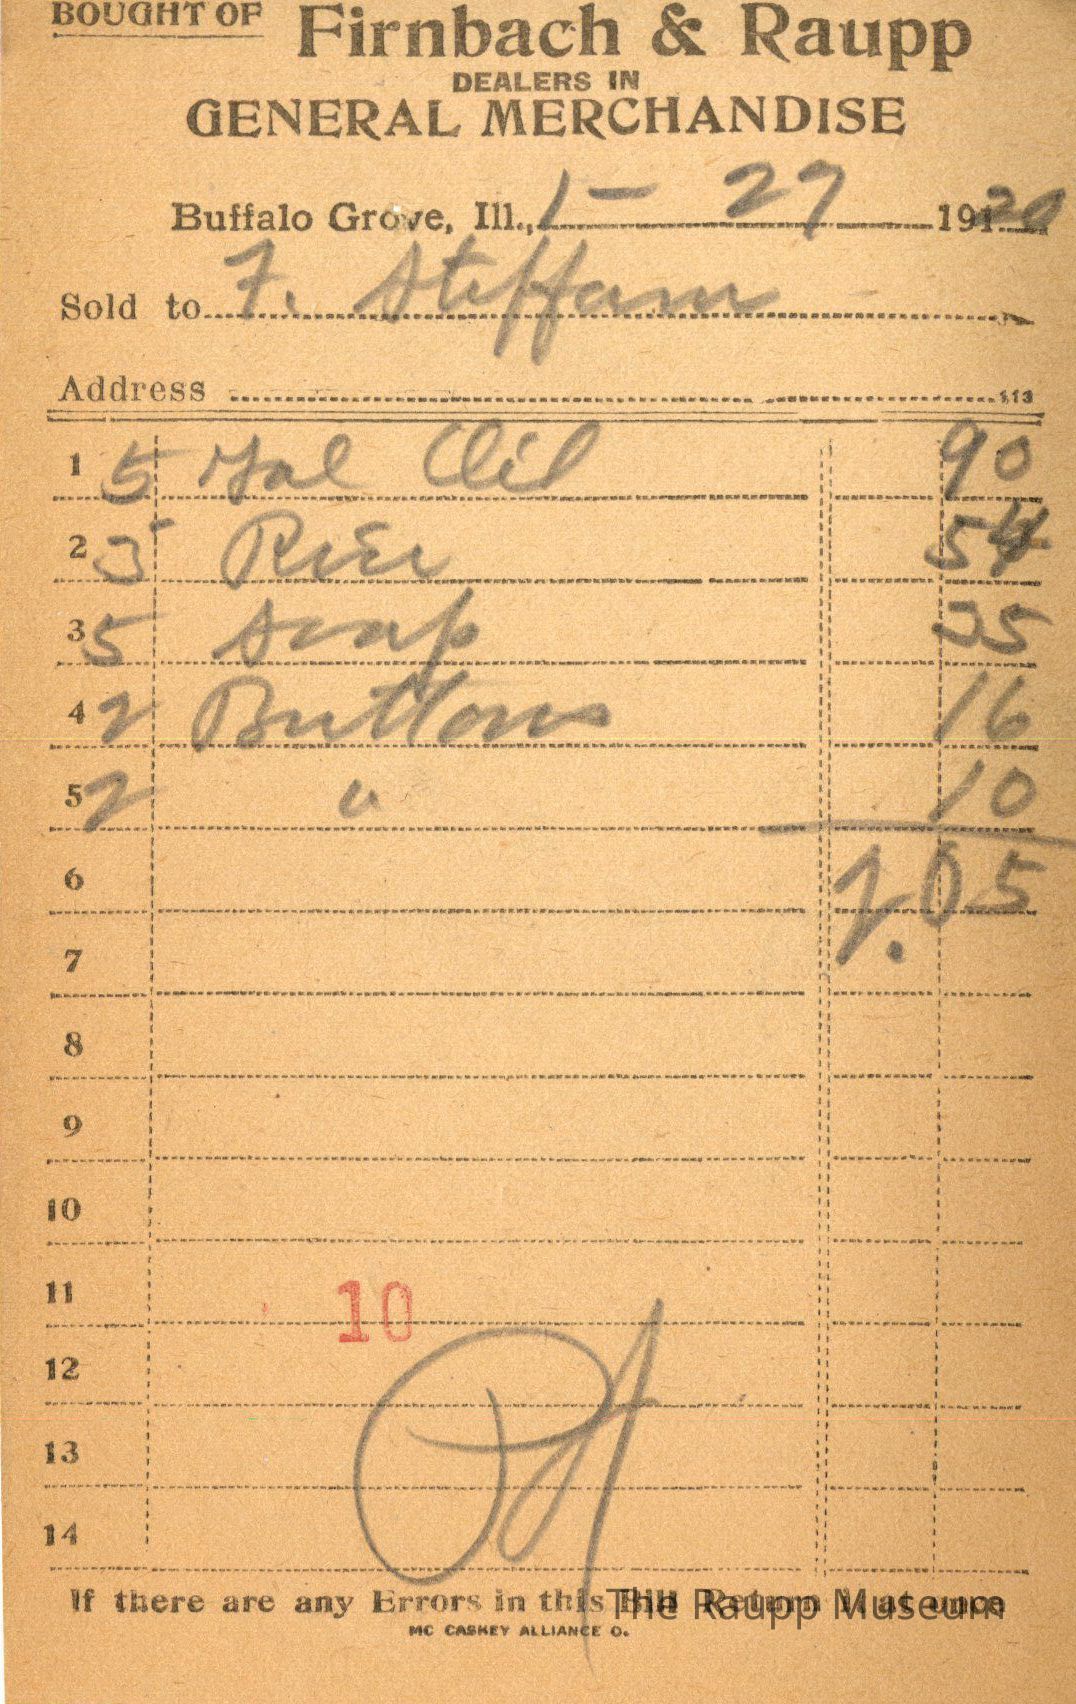 BOUGHT OF Firnbach & Raupp
DEALERS IN
GENERAL MERCHANDISE
Buffalo Grove, Ill., 1-27 1920
Sold to F. Steffam
Address 113
1 5 Gal Oil 90
2 3 Rice 54
3 5 Soap 35
4 2 Buttons 16
5 2 " 10
6 2.05
7
8
9
10
11
10
12
13
14
If there are any Errors in this Bill Return it at once
The Raupp Museum
MC CASKEY ALLIANCE O.